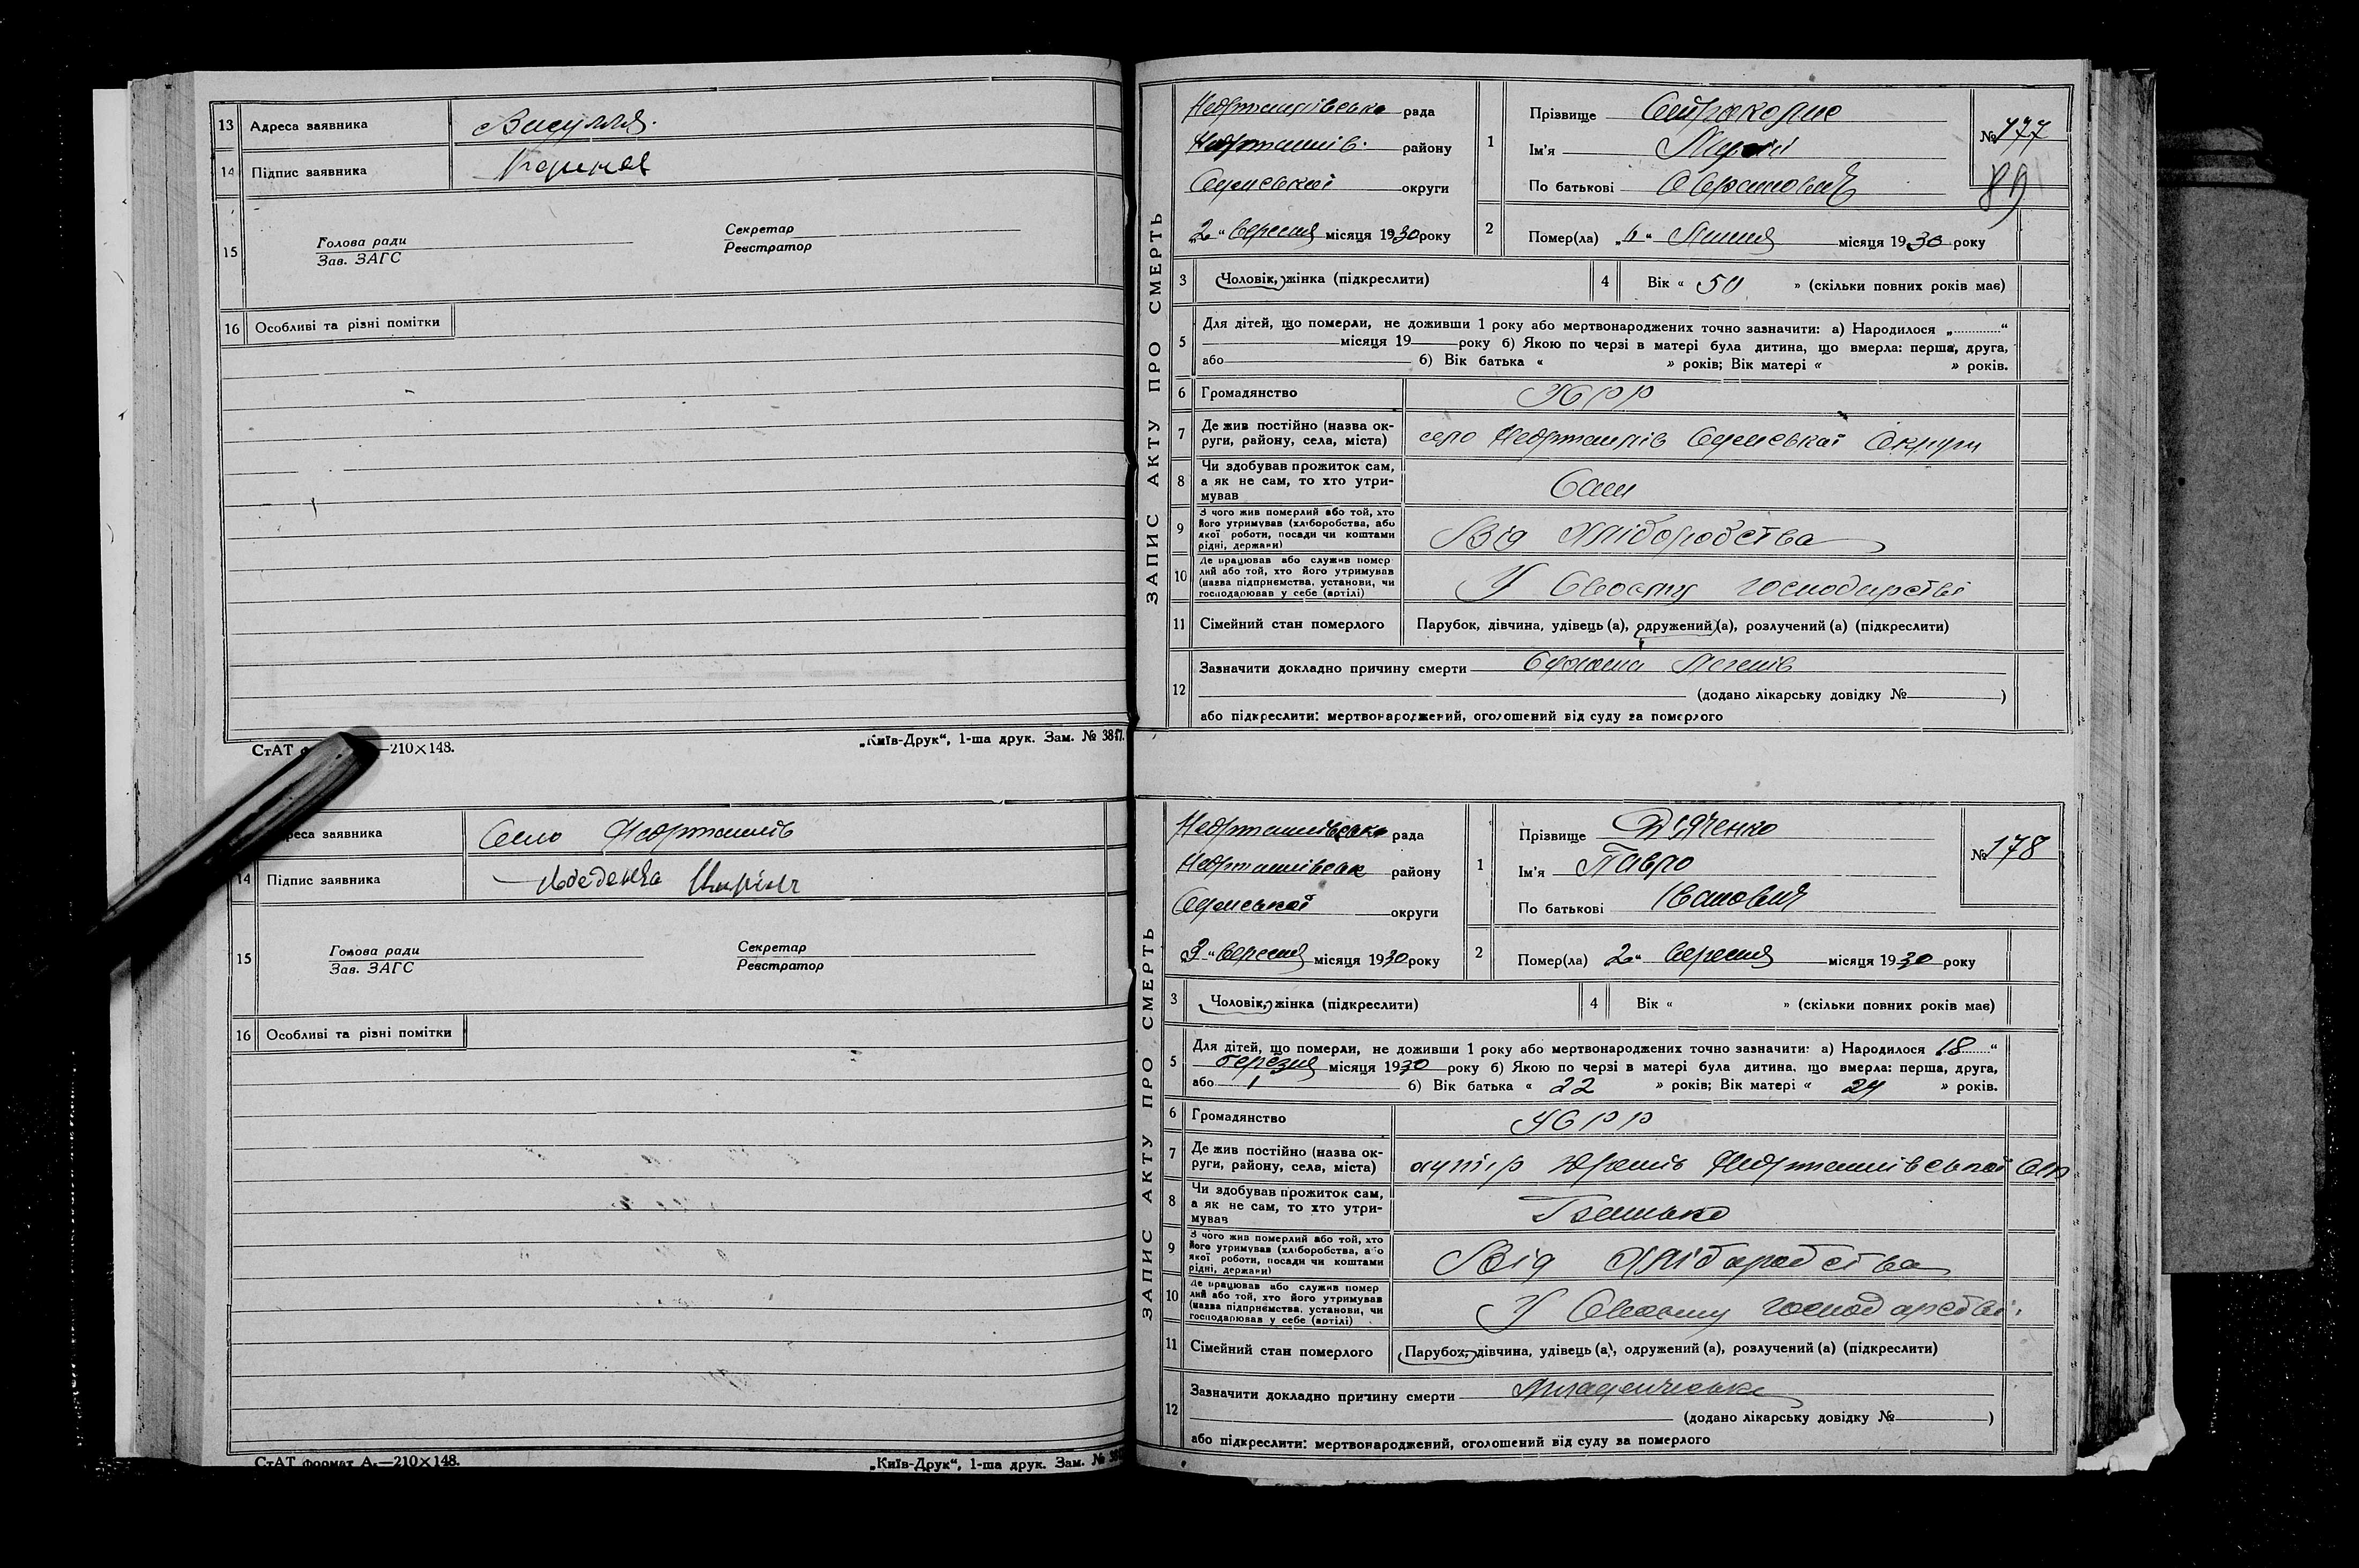 13 Адреса заявника
14 Підпис заявника
15 Голова ради Секретар
Зав. ЗАГС Реєстратор
16 Особливі та різні помітки
СтАТ —210×148. „Київ-Друк“, 1-ша друк. Зам. № 3847.
адреса заявника Село
14 Підпис заявника
15 Голова ради Секретар
Зав. ЗАГС Реєстратор
16 Особливі та різні помітки
СтАТ формат А₅—210×148. „Київ-Друк“, 1-ша друк. Зам. №
ЗАПИС АКТУ ПРО СМЕРТЬ
рада
району
Сумської округи
„2“ Вересня місяця 1930 року
1 Прізвище
Ім'я
По батькові
№ 177
89
2 Помер(ла) „6“ Липня місяця 1930 року
3 Чоловік, жінка (підкреслити) 4 Вік « 50 » (скільки повних років має)
5 Для дітей, що померли, не доживши 1 року або мертвонароджених точно зазначити: а) Народилося „ “
місяця 19 року б) Якою по черзі в матері була дитина, що вмерла: перша, друга,
або б) Вік батька « » років; Вік матері « » років.
6 Громадянство УСРР
7 Де жив постійно (назва округи, району, села, міста) село Недригайлів Сумської Округи
8 Чи здобував прожиток сам, а як не сам, то хто утримував Сам
9 З чого жив померлий або той, хто його утримував (хліборобства, або якої роботи, посади чи коштами рідні, держави) Від Хліборобства
10 Де працював або служив померлий або той, хто його утримував (назва підприємства, установи, чи господарював у себе (артілі) У Своєму господарстві
11 Сімейний стан померлого Парубок, дівчина, удівець (а), одружений (а), розлучений (а) (підкреслити)
12 Зазначити докладно причину смерти
(додано лікарську довідку № )
або підкреслити: мертвонароджений, оголошений від суду за померлого
ЗАПИС АКТУ ПРО СМЕРТЬ
рада
району
Сумської округи
„3“ Вересня місяця 1930 року
1 Прізвище Д'яченко
Ім'я Павло
По батькові Іванович
№ 178
2 Помер(ла) 2“ Вересня місяця 1930 року
3 Чоловік, жінка (підкреслити) 4 Вік « » (скільки повних років має)
5 Для дітей, що померли, не доживши 1 року або мертвонароджених точно зазначити: а) Народилося 18 “
березня місяця 1930 року б) Якою по черзі в матері була дитина, що вмерла: перша, друга,
або 1 б) Вік батька « 22 » років; Вік матері « 24 » років.
6 Громадянство УСРР
7 Де жив постійно (назва округи, району, села, міста) хутір
8 Чи здобував прожиток сам, а як не сам, то хто утримував Батько
9 З чого жив померлий або той, хто його утримував (хліборобства, або якої роботи, посади чи коштами рідні, держави) Від Хліборобства
10 Де працював або служив померлий або той, хто його утримував (назва підприємства, установи, чи господарював у себе (артілі) У Своєму господарстві
11 Сімейний стан померлого Парубок, дівчина, удівець (а), одружений (а), розлучений (а) (підкреслити)
12 Зазначити докладно причину смерти
(додано лікарську довідку № )
або підкреслити: мертвонароджений, оголошений від суду за померлого